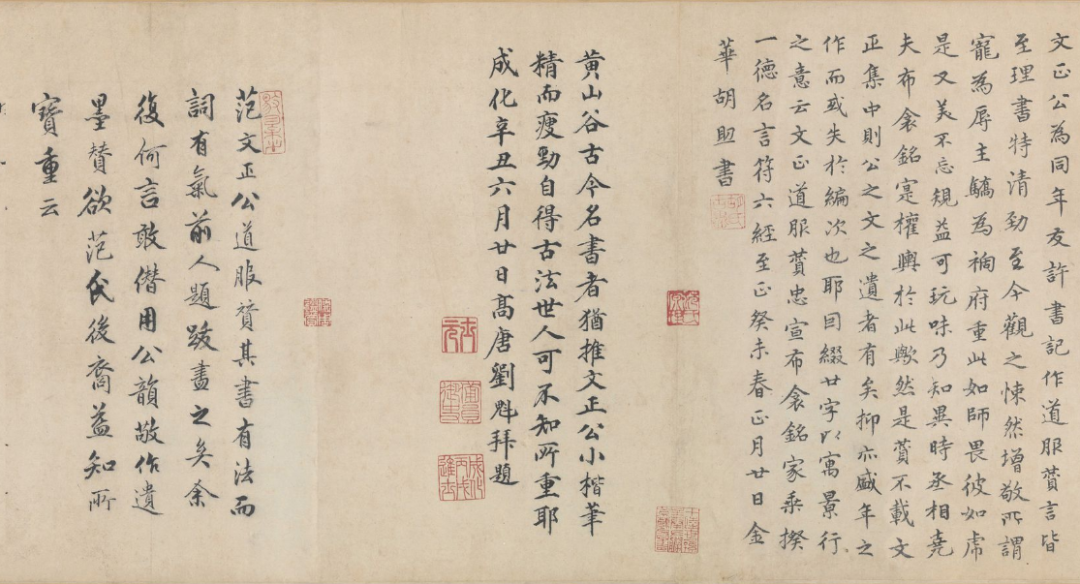 文正公為同年友許書記作道服贊言皆
至理書特清勁至今觀之悚然增敬所謂
寵為辱主驕為禍府重此如師畏彼如虎
是又美不忘規益可玩味乃知異時丞相堯
夫布衾銘寔權輿於此歟然是贊不載文
正集中則公之文之遺者有矣抑亦盛年之
作而或失於編次也耶因綴廿字以寓景行
之意云文正道服贊忠宣布衾銘家乘揆
一德名言符六經至正癸未春正月廿日金
華胡助書
黃山谷古今名書者猶推文正公小楷筆
精而瘦勁自得古法世人可不知所重耶
成化辛丑六月廿日高唐劉魁拜題
范文正公道服贊其書有法而
詞有氣前人題跋盡之矣余
復何言敢僣用公韻敬作遺
墨贊欲范氏後裔益知所
寶重云